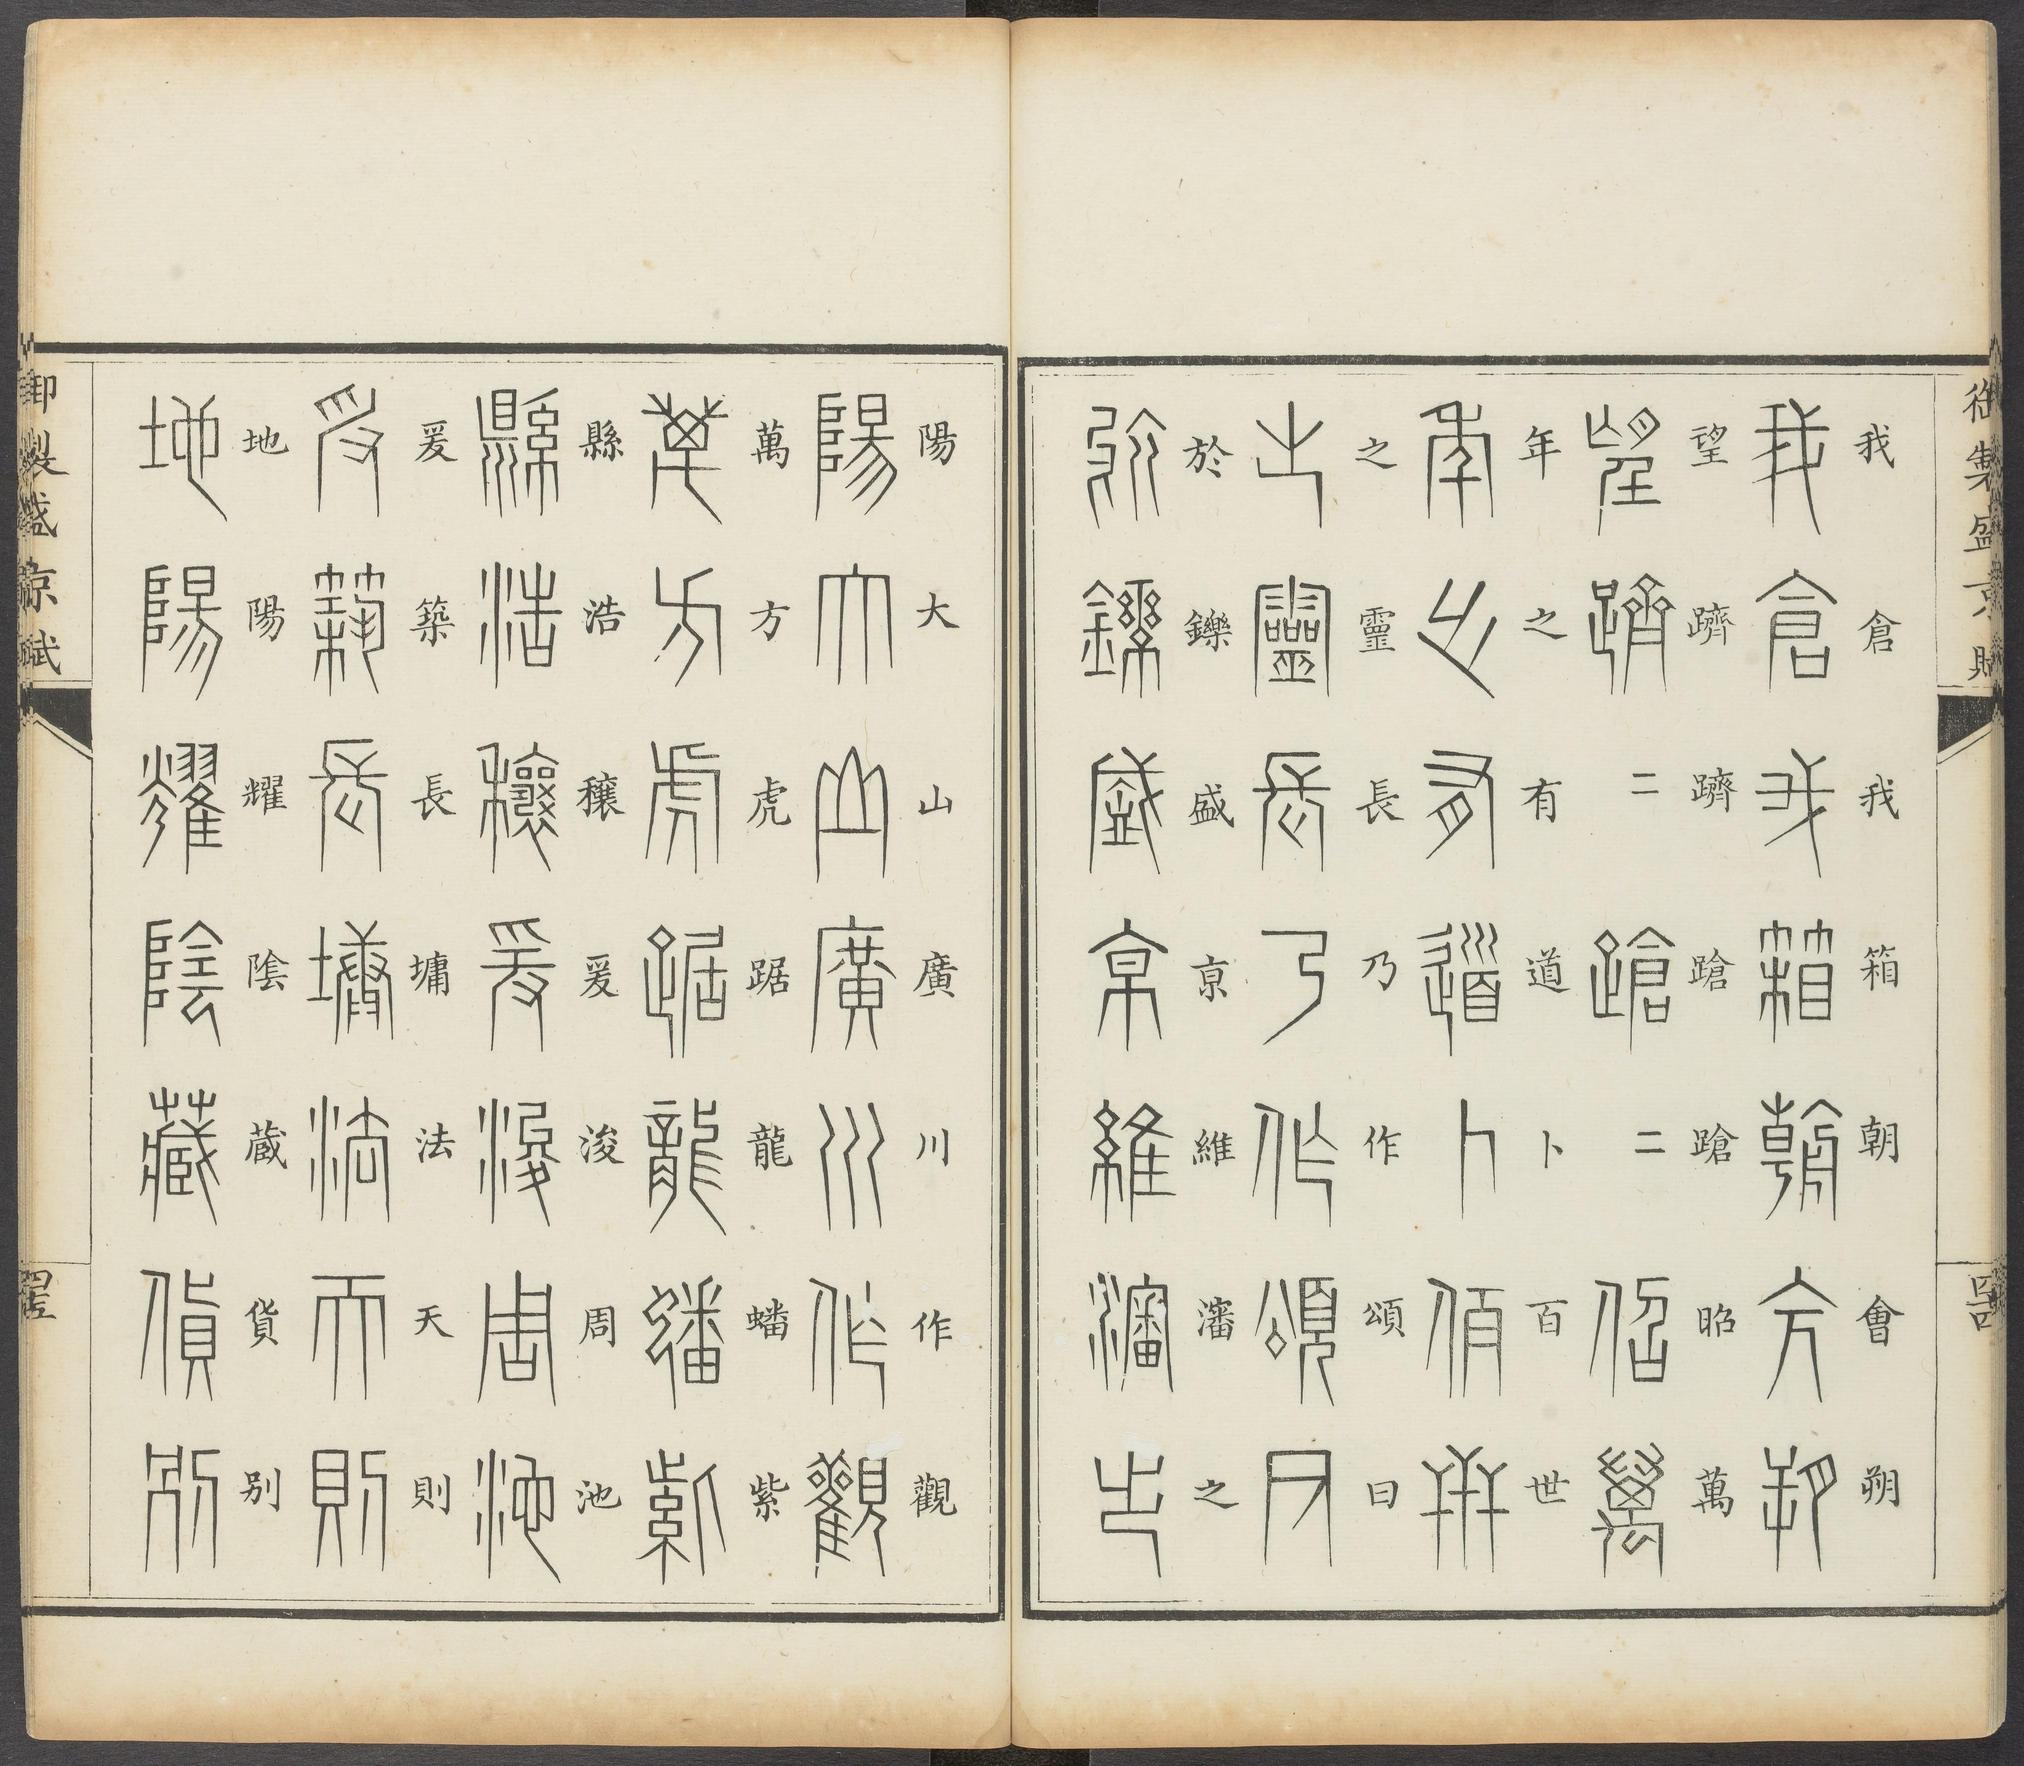 御製盛京賦
我倉我箱朝會朔
望躋躋蹌蹌昭萬
年之有道卜百世
之靈長乃作頌曰
於鑠盛京維瀋之
陽大山廣川作觀
萬方虎踞龍蟠紫
縣浩穰爰浚周池
爰築長墉法天則
地陽耀陰藏貨别
御製盛京賦